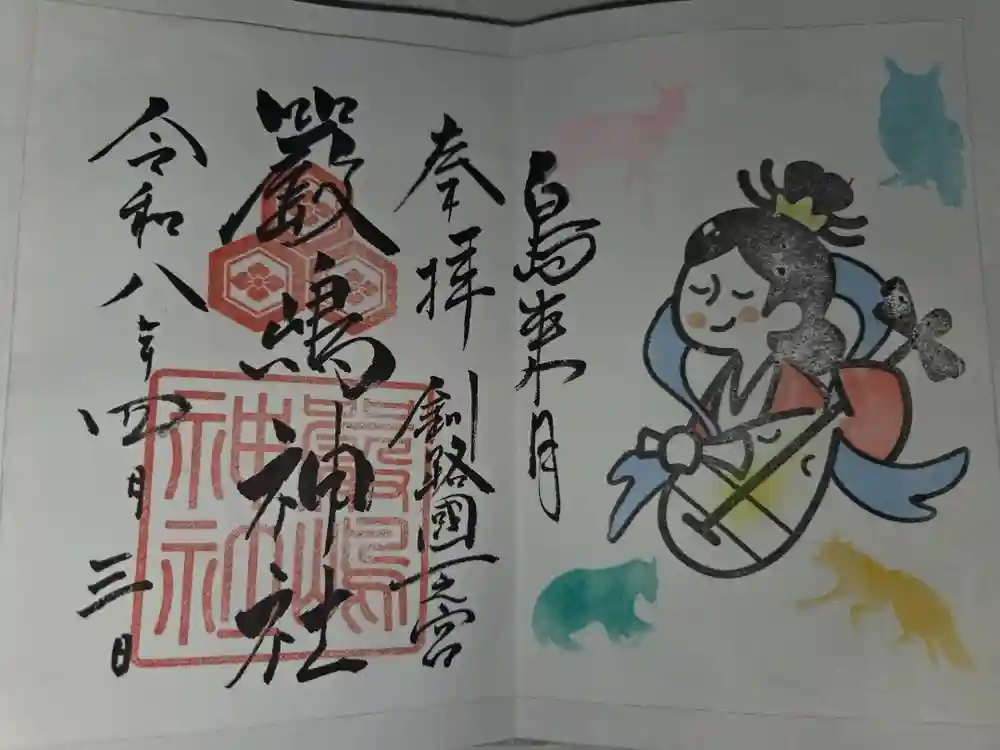 鳥来月
奉拝 釧路國一之宮
嚴嶋神社
嚴嶋
神社
令和八年四月三日